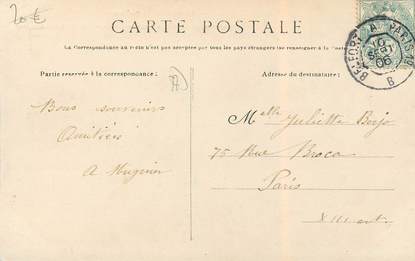 20€
CARTE POSTALE
La Correspondance au recto n'est pas acceptée par tous les pays étrangers (se renseigner à la Poste)
Partie réservée à la correspondance:
Adresse du destinataire:
BELFORT A PARIS
10
SEPT
06
B
Bons souvenirs
Amitiés
A Hugnin
Melle Juliette Borjo
75 Rue Broca
Paris
XIII arrt.